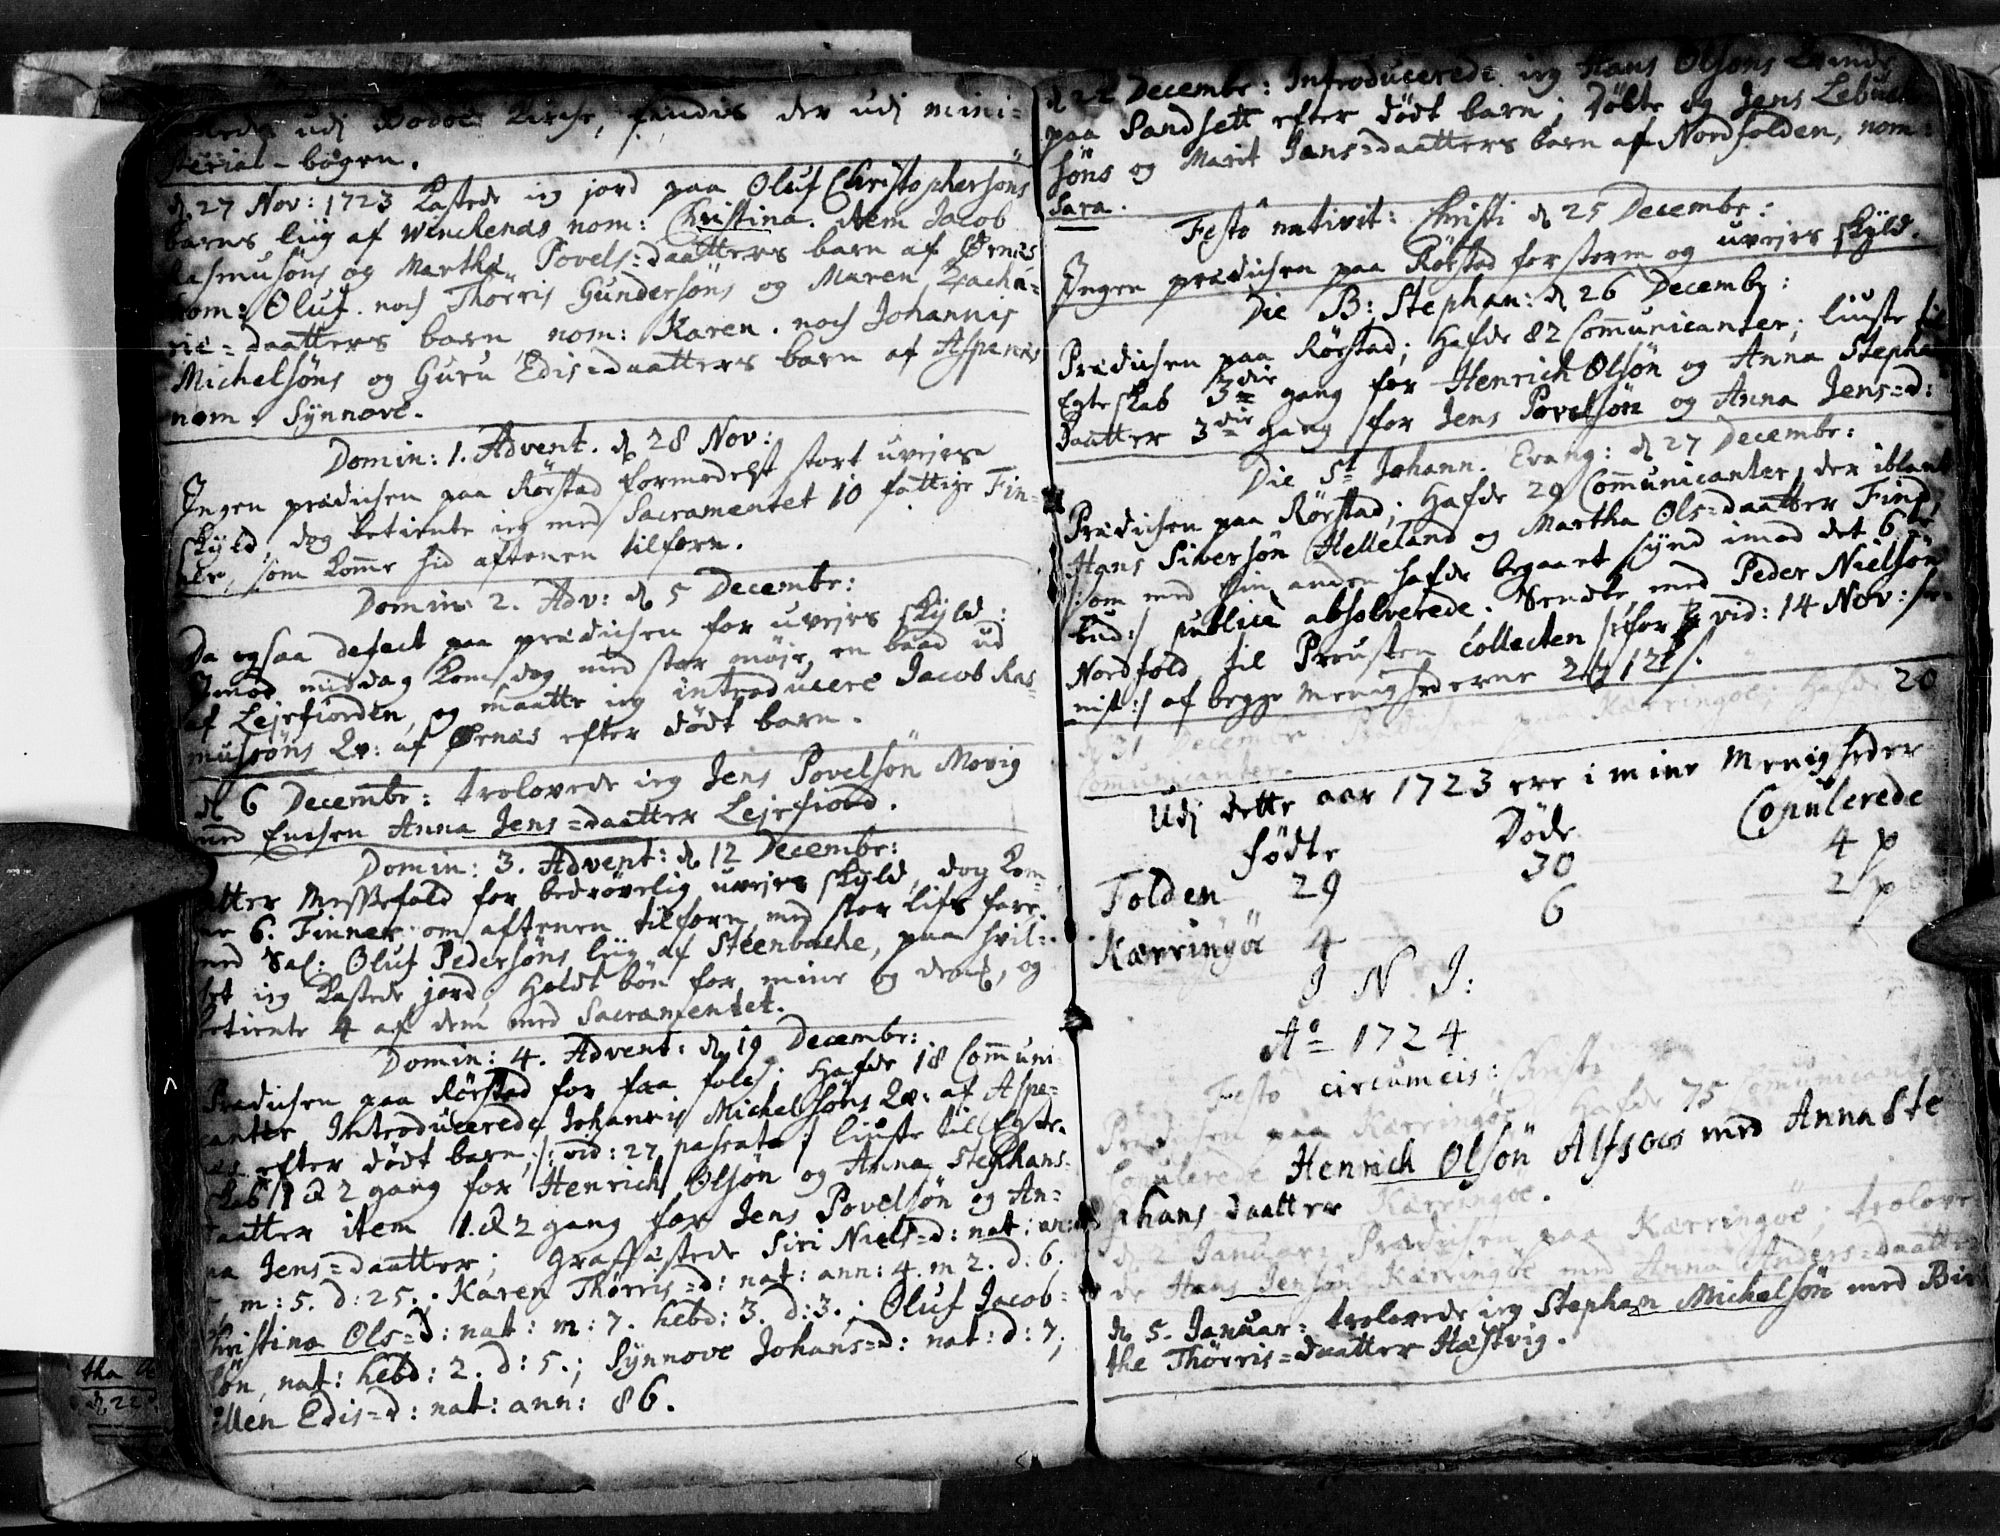 udj Bodøe Kirche, findis der udj mini=
sterial-bogen.
d. 27 Nov: 1723 kastede ieg jord paa Oluf Christophersöns
barns liig af Winckenæs nom: Christina. item Jacob
Rasmusöns og Martha Povels=daatters barn af Ørnæs
nom: Oluf. noch Thorris Gundersöns og Maren Zacha=
rie=daatters barn nom: Karen. noch Johannis
Michelsöns og Guru Edis=daatters barn af Aspenæs
nom: Synnove.
Domin: 1. Advent. d. 28 Nov:
Ingen prædichen paa Rörstad formedelst stort uvejrs
skyld, dog betiente ieg med Sacramentet 10 fattige Fin=
ner, som komme hid aftenen tilforn.
Domin: 2. Adv: d. 5 Decembr:
Da ogsaa defect paa prædichen for uvejrs skyld:
Imod middag kom dog med stor möje en baad ud
af Lejrfiorden, og maatte ieg introducere Jacob Ras=
musöns Qv: af Ørnæs efter dödt barn.
d. 6 Decembr: trolovede ieg Jens Povelsön Movig
med Enchen Anna Jens=daatter Lejrfiord.
Domin: 3. Advent: d. 12 Decembr:
atter Messefald for bedrövelig uvejrs skyld, dog kom=
me 6. Finner om aftenen tilforn med stor lifs fare
med Sal: Oluf Pedersöns liig af Steenbache, paa hvil=
ket ieg kastede jord. Holdt bön for mine og dem, og
betiente 4 af dem med Sacramentet.
Domin: 4. Advent: d. 19 Decembr:
Prædichen paa Rörstad for faa folch. Hafde 18 Communi=
canter, Introducerede Johannis Michelsöns Qv: af Aspe=
næs efter dödt barn, /: vid: 27 passata:/ liuste till Egte=
skab 1 & 2 gang for Henrich Olsön og Anna Stephans=
daatter item 1. & 2 gang for Jens Povelsön og An=
na Jens=daatter; Graffæstede Siri Niels=d: nat: an:
m: 5. d: 25.; Karen Thorris=d: nat: ann: 4. m 2. d: 6.
Christina Ols=d: nat: m: 7. hebd: 3. d: 3.; Oluf Jacob=
sön, nat: hebd: 2. d: 5.; Synnove Johans=d: nat: d: 7;
Ellen Edis=d: nat: ann: 86.
d. 22 Decembr: Introducerede ieg Hans Olsöns Qvinde
paa Sandsett efter dödt barn; döbte og Jens
söns og Marit Jans=daatters barn af Nordfolden, nom:
Sara.
Festo nativit: Christi d. 25 Decembr:
Ingen prædichen paa Rörstad for storm og uvejrs skyld.
Die B: Stephan: d. 26 Decembr:
Prædichen paa Rörstad; Hafde 82 Communicanter; liuste til
Egteskab 3die gang for Henrich Olsön og Anna Stephans
daatter 3die gang for Jens Povelsön og Anna Jens=d:
Die St Johann. Evang: d. 27 Decembr:
Prædichen paa Rörstad; Hafde 29 Communicanter, der iblant
Hans Siversön Helleland og Martha Ols=daatter Find,
/:som med hin anden hafde begaaet synd imod det 6te
bud:/ publicè absolverede. Sendte med Peder Nielsön
Nordfold til Prousten Collecten /:for vid: 14 Nov:
nist:/ af begge menighederne 2 12
d. 31 Decembr Prædichen paa Kærringöe; Hafde 20
Communicanter.
Udj dette aar 1723 ere i mine Menigheder
födte Döde Copulerede
Folden 29 30 4 p
Kærringöe 4 6 2 p
I N. J:
Ao 1724
Festo circumcis: Christi
Prædichen paa Kærringöe, Hafde 75 Communicanter
Copulerede Henrich Olsön Alfsoes med Anna Ste
phans daatter Kærringöe.
d. 2 Januar: Prædichen paa Kærringöe; trolove
de Hans Jensön Kærringöe med Anna Anders=daatter
d. 5. Januar: trolovede ieg Stephan Michelsön med Bir
the Thorris=daatter Hæstvig.